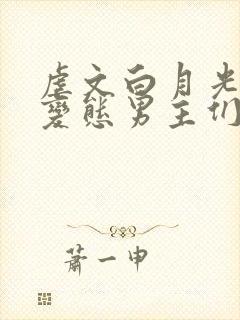 虐文白月光
變態男主们
蕭一申